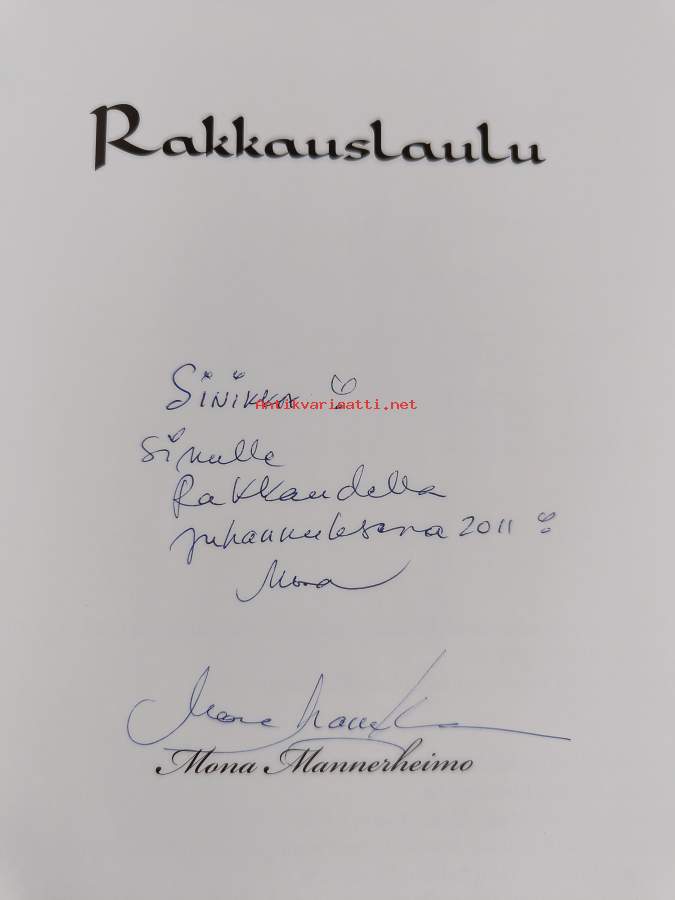 Rakkauslaulu
Sinikka
Antikvariaatti.net
Sinulle
Rakkaudella
juhannuksena 2011
Mona
Mona Mannerheimo